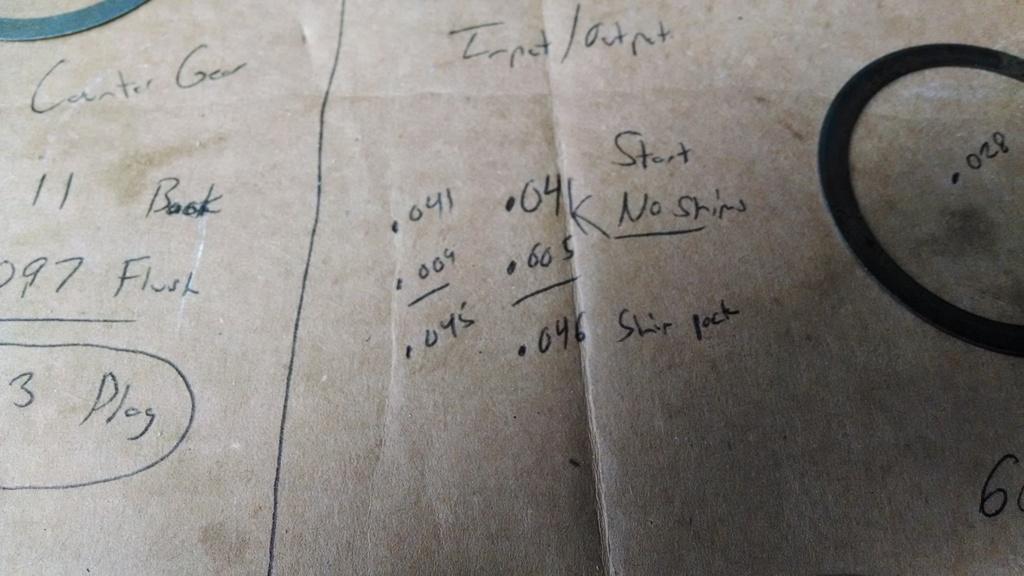 Counter Gear
11 Back
097 Flush
3 Play
Input/Output
Start
.041 .041 No Shims
.004 .005
.045 .046 Shim pack
.028
6